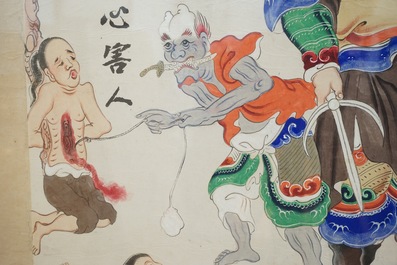 心害人